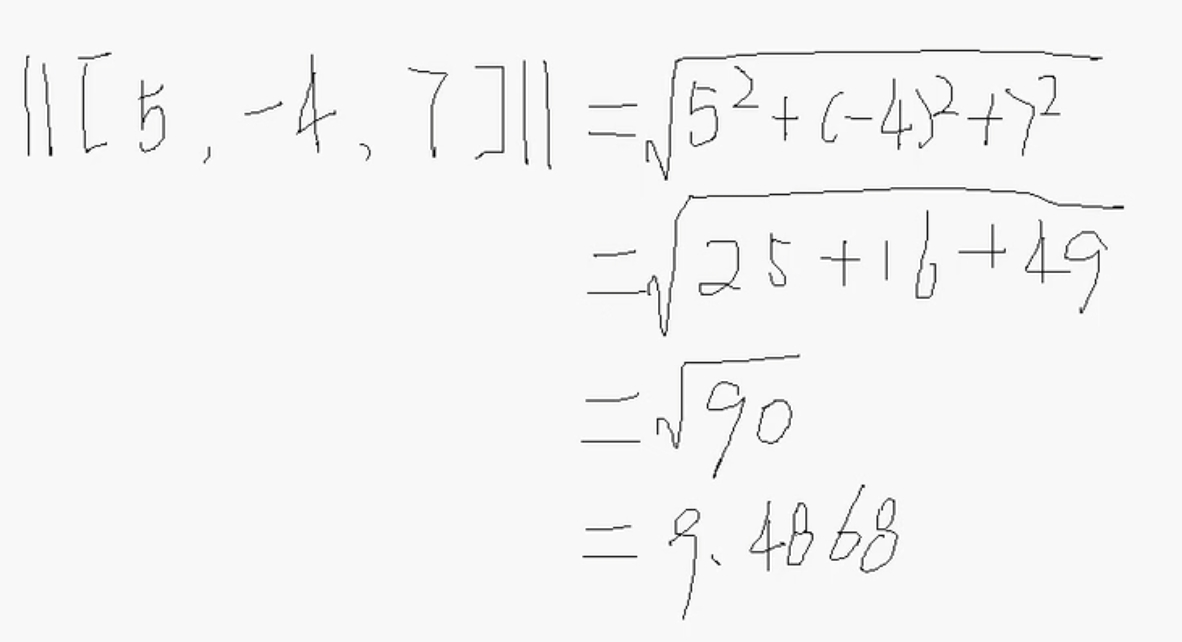 ||[5, -4, 7]|| = √(5² + (-4)² + 7²)
= √(25 + 16 + 49)
= √90
= 9.4868